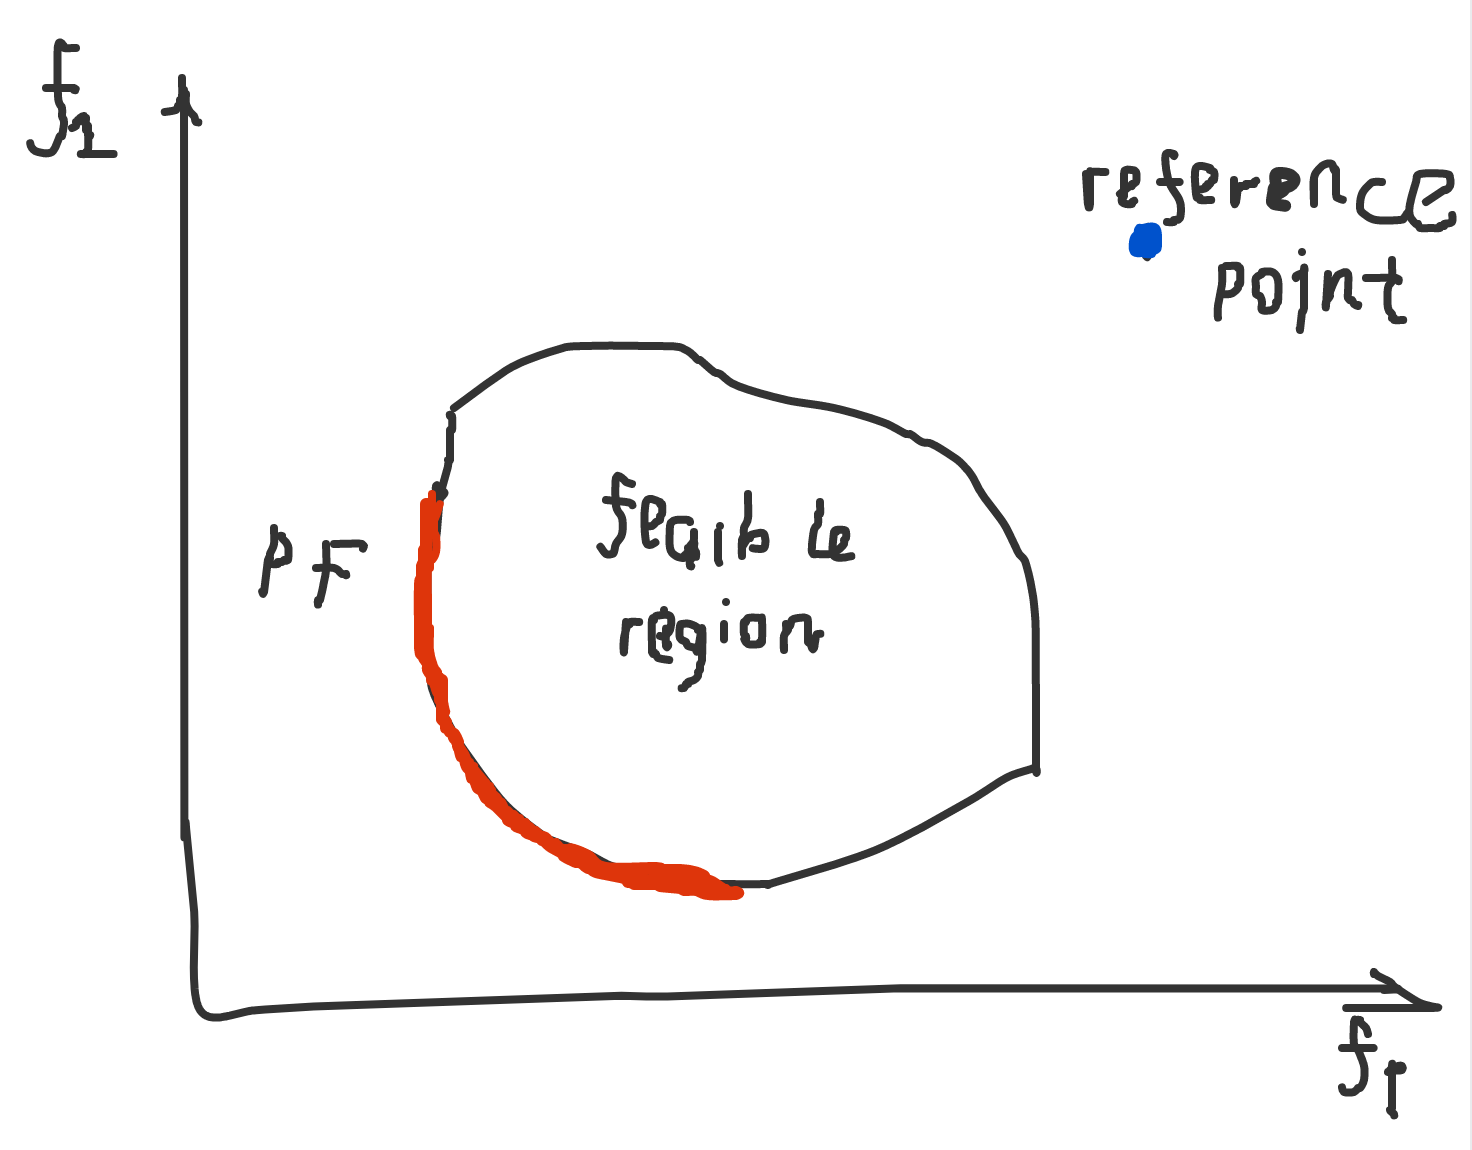 f2
reference
point
feaible
region
PF
f1